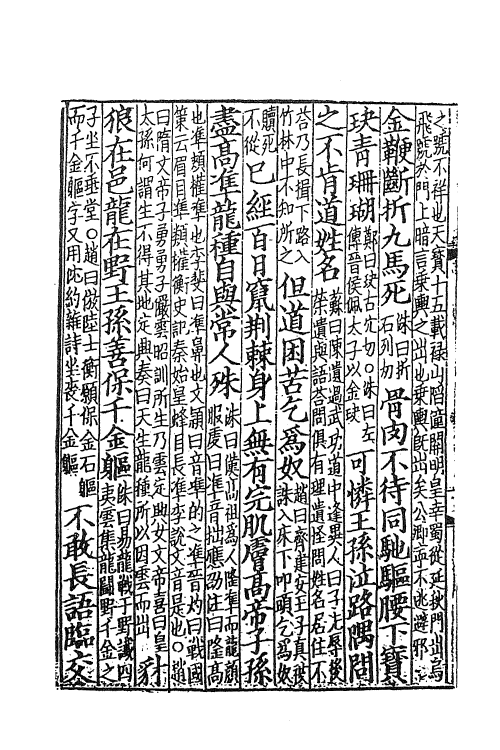 之號不祥也天寶十五載祿山陷潼關明皇幸蜀從延秋門出烏
飛號外門上暗言乘輿之出也乘輿既出矣公卿而下逃避邪
金鞭斷折九馬死
洙曰折
石列切
骨肉不待同馳驅腰下寶
玦青珊瑚
鄭曰玦古穴切○洙曰左
傳晉侯佩太子以金玦
可憐王孫泣路隅問
之不肯道姓名
蘇曰陳遺過武功道中逢異人曰子沈辱後
榮遺與語荅問俱有理遺怪問姓名居住不
荅乃長揖下路入
竹林中不知所之
但道困苦乞為奴
趙曰齊建安王子真被
誅入床下叩頭乞為奴
贖死
不從
已經百日竄荆棘身上無有完肌膚高帝子孫
盡高准龍種自與常人殊
洙曰漢高祖為人隆準而龍顏
服虔曰準音拙應劭注曰隆高
也準頰權準也李斐曰準鼻也文穎曰音準的之準晉灼曰戰國
策云眉目準頞權衡史記秦始皇蜂目長準李說文音是也○趙
曰隋文帝勇勇子儼雲昭訓所生乃雲定興女文帝喜曰皇
太孫何謂生不得其地定興奏曰天生龍種所以因雲而出
豺
狼在邑龍在野王孫善保千金軀
洙曰易龍戰于野讖四
夷雲集龍鬭野千金之
子坐不垂堂○趙曰倣陸士衡願保金石軀
而千金軀字又用沈約雜詩坐喪千金軀
不敢長語臨交